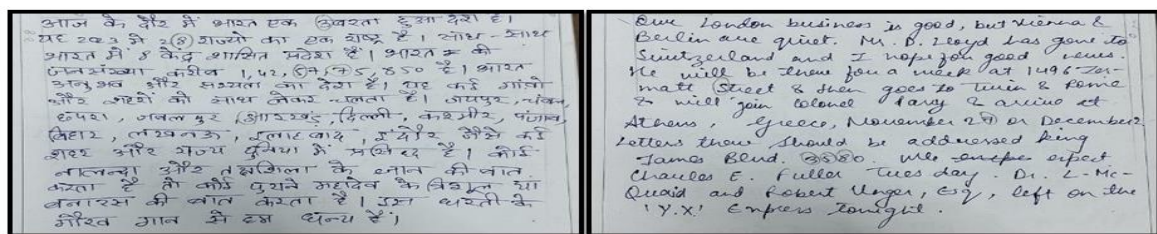 आज के दौर में भारत एक उभरता हुआ देश है।
यह 2023 में 28 राज्यो का एक राष्ट्र है। साथ-साथ
भारत में 8 केंद्र शासित प्रदेश हैं। भारत की
जनसंख्या करीब 1,42,57,75,850 है। भारत
अनुभव और सभ्यता का देश है। यह कई गांवो
और शहरों को साथ लेकर चलता है। जयपुर, चंबल,
छपरा, जबलपुर, झारखंड, दिल्ली, कश्मीर, पंजाब,
बिहार, लखनऊ, इलाहबाद, इंदौर जैसे कई
शहर और राज्य दुनिया में प्रसिध्द है। कोई
नालन्दा और तक्षशिला के ज्ञान की बात
करता है तो कोई पुराने महादेव के त्रिशूल या
बनारस की बात करता है। इस धरती के
गौरव गान से हम धन्य हैं।
Our London business is good, but Vienna &
Berlin are quiet. Mr. D. Lloyd has gone to
Switzerland and I hope for good news.
He will be there for a week at 1496 Zer-
matt Street & then goes to Turin & Rome
& will join Colonel Parry & arrive at
Athens, Greece, November 27 or December 2.
Letters there should be addressed King
James Blvd. 3580. We expect
Charles E. Fuller Tuesday. Dr. L. Mc-
Quaid and Robert Unger, Esq, left on the
'Y.X.' Express tonight.